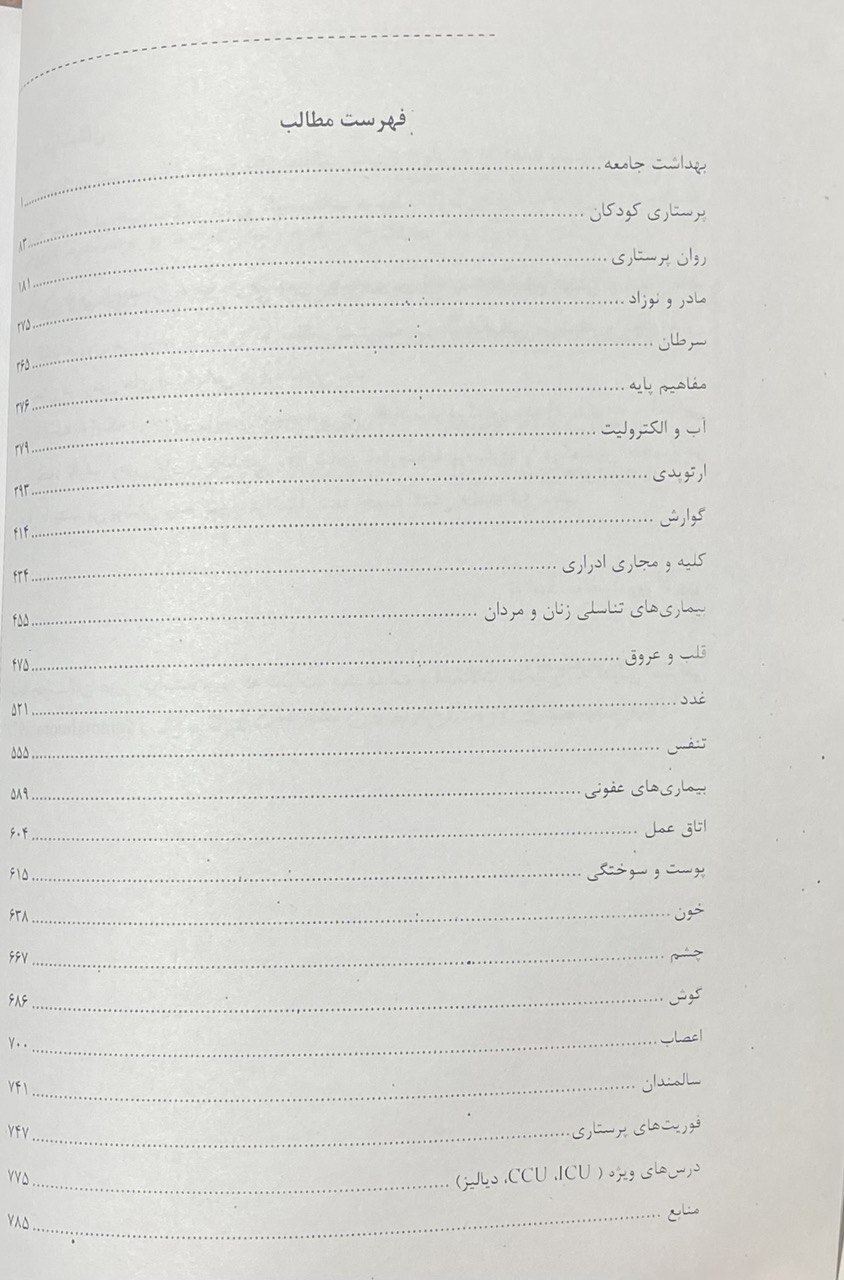 فهرست مطالب
بهداشت جامعه ........ ۱
پرستاری کودکان ........ ۸۳
روان پرستاری ........ ۱۸۱
مادر و نوزاد ........ ۲۷۵
سرطان ........ ۳۶۵
مفاهیم پایه ........ ۳۷۶
آب و الکترولیت ........ ۳۷۹
ارتوپدی ........ ۳۹۳
گوارش ........ ۴۱۴
کلیه و مجاری ادراری ........ ۴۳۴
بیماری‌های تناسلی زنان و مردان ........ ۴۵۵
قلب و عروق ........ ۴۷۵
غدد ........ ۵۲۱
تنفس ........ ۵۵۵
بیماری‌های عفونی ........ ۵۸۹
اتاق عمل ........ ۶۰۴
پوست و سوختگی ........ ۶۱۵
خون ........ ۶۳۸
چشم ........ ۶۶۷
گوش ........ ۶۸۶
اعصاب ........ ۷۰۰
سالمندان ........ ۷۴۱
فوریت‌های پرستاری ........ ۷۴۷
درس‌های ویژه ( CCU ،ICU، دیالیز) ........ ۷۷۵
منابع ........ ۷۸۵